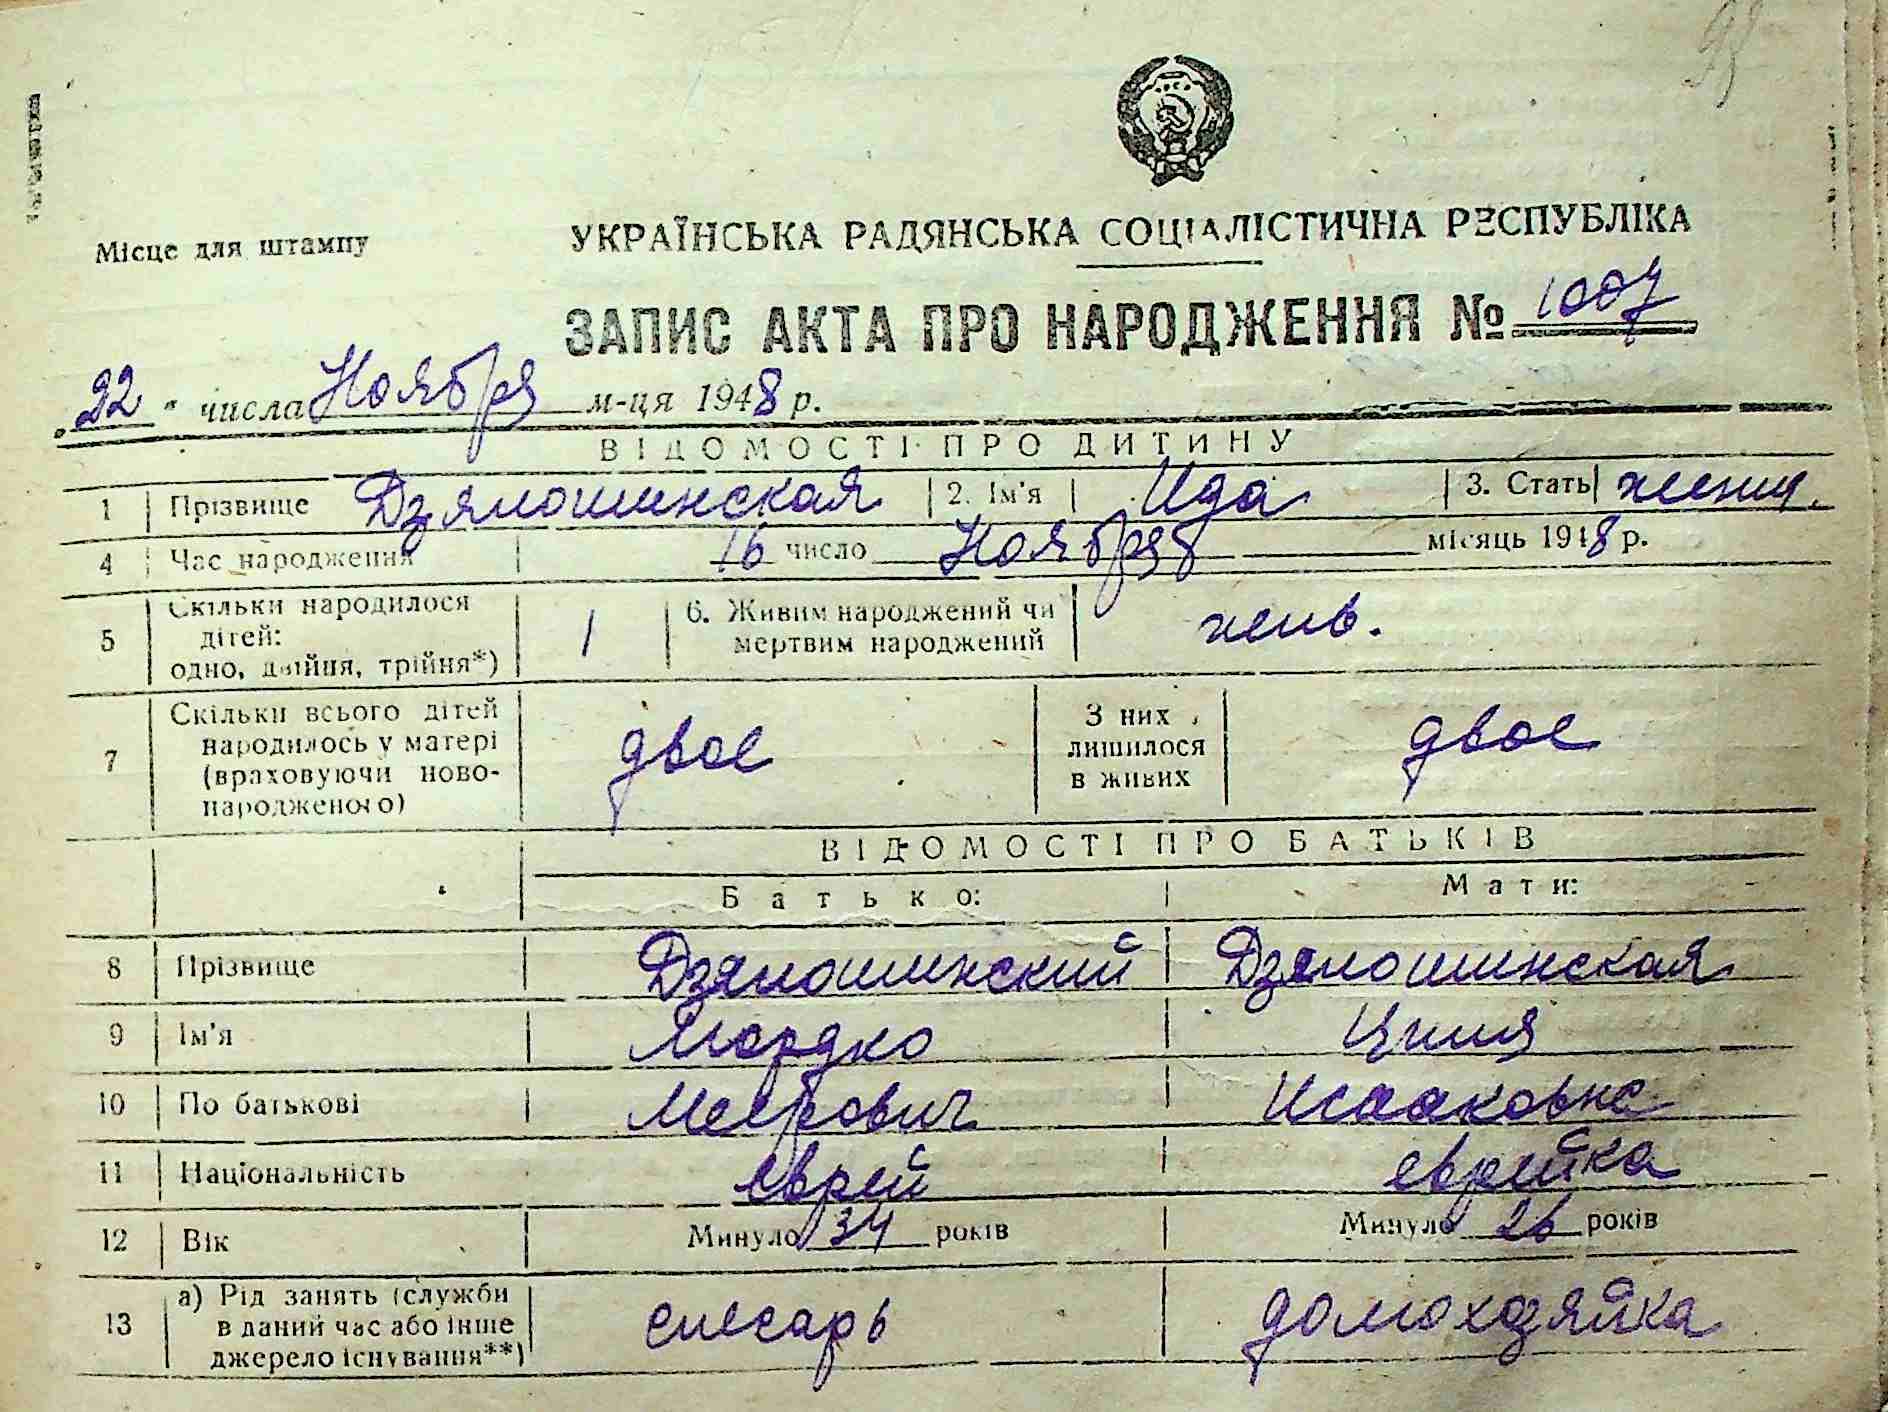 98
Місце для штампу
УКРАЇНСЬКА РАДЯНСЬКА СОЦІАЛІСТИЧНА РЕСПУБЛІКА
ЗАПИС АКТА ПРО НАРОДЖЕННЯ № 1007
„22" числа Ноября м-ця 1948 р.
ВІДОМОСТІ ПРО ДИТИНУ
1 Прізвище Дзялошинская 2. Ім'я Ида 3. Стать женск.
4 Час народження 16 число Ноября місяць 1948 р.
5 Скільки народилося
дітей:
одно, двійня, трійня*) 1 6. Живим народжений чи
мертвим народжений жив.
7 Скільки всього дітей
народилось у матері
(враховуючи ново-
народженого) двое З них
лишилося
в живих двое
ВІДОМОСТІ ПРО БАТЬКІВ
Батько: Мати:
8 Прізвище Дзялошинский Дзялошинская
9 Ім'я Мордко
10 По батькові Меерович Исааковна
11 Національність еврей еврейка
12 Вік Минуло 34 років Минуло 26 років
13 а) Рід занять (служби
в даний час або інше
джерело існування**) слесарь домохозяйка